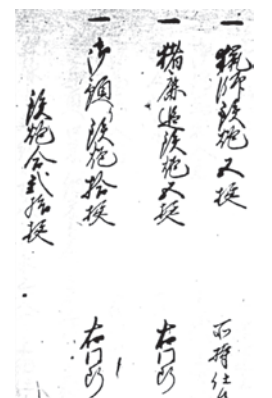 一 猟師鉄炮 五挺 所持仕
一 猪鹿追鉄炮 五挺 右同断
一 御預り鉄炮 拾挺 右同断
鉄炮合弐拾挺